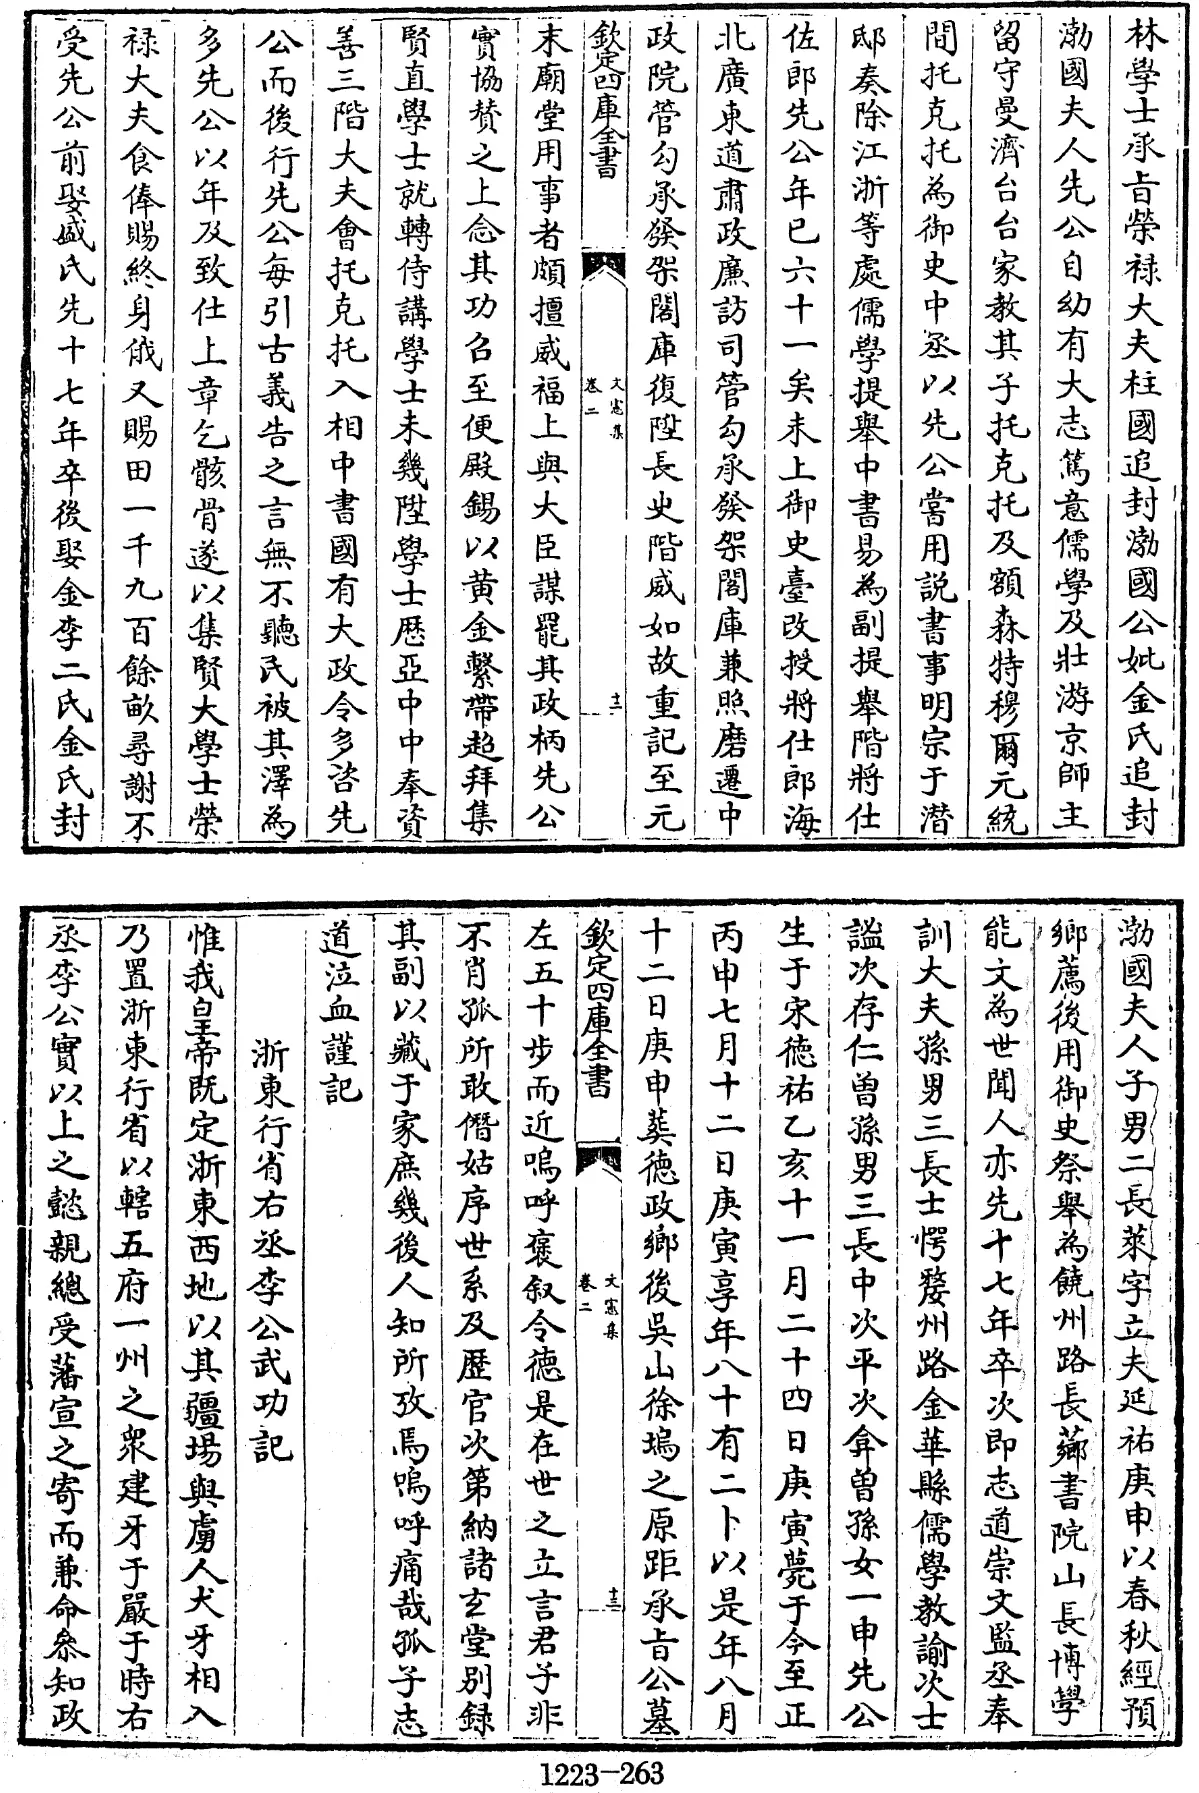 林學士承旨榮禄大夫柱國追封渤國公妣金氏追封
渤國夫人先公自幼有大志篤意儒學及壯游京師主
留守曼濟台台家教其子托克托及額森特穆爾元統
間托克托為御史中丞以先公嘗用説書事明宗于潜
邸奏除江浙等處儒學提舉中書易為副提舉階將仕
佐郎先公年已六十一矣未上御史臺改授將仕郎海
北廣東道肅政廉訪司管勾承發架閣庫兼照磨遷中
政院管勾承發架閣庫復陞長史階威如故重記至元
欽定四庫全書
文憲集
卷二
十二
末廟堂用事者頗擅威福上與大臣謀罷其政柄先公
實協賛之上念其功召至便殿錫以黄金繫帶超拜集
賢直學士就轉侍講學士未幾陞學士歴亞中中奉資
善三階大夫會托克托入相中書國有大政令多咨先
公而後行先公每引古義告之言無不聽民被其澤為
多先公以年及致仕上章乞骸骨遂以集賢大學士榮
禄大夫食俸賜終身俄又賜田一千九百餘畝尋謝不
受先公前娶盛氏先十七年卒後娶金李二氏金氏封
渤國夫人子男二長萊字立夫延祐庚申以春秋經預
鄉薦後用御史祭舉為饒州路長薌書院山長博學
能文為世聞人亦先十七年卒次即志道崇文監丞奉
訓大夫孫男三長士愕婺州路金華縣儒學教諭次士
謐次存仁曾孫男三長中次平次弇曾孫女一申先公
生于宋徳祐乙亥十一月二十四日庚寅薨于今至正
丙申七月十二日庚寅享年八十有二卜以是年八月
十二日庚申葬徳政鄉後吳山徐塢之原距承旨公墓
欽定四庫全書
文憲集
卷二
十三
左五十步而近嗚呼褒叙令徳是在世之立言君子非
不肖孤所敢僭姑序世系及歴官次第納諸玄堂别録
其副以藏于家庶幾後人知所攷焉嗚呼痛哉孤子志
道泣血謹記
浙東行省右丞李公武功記
惟我皇帝既定浙東西地以其疆埸與虜人犬牙相入
乃置浙東行省以轄五府一州之衆建牙于嚴于時右
丞李公實以上之懿親總受藩宣之寄而兼命叅知政
1223-263